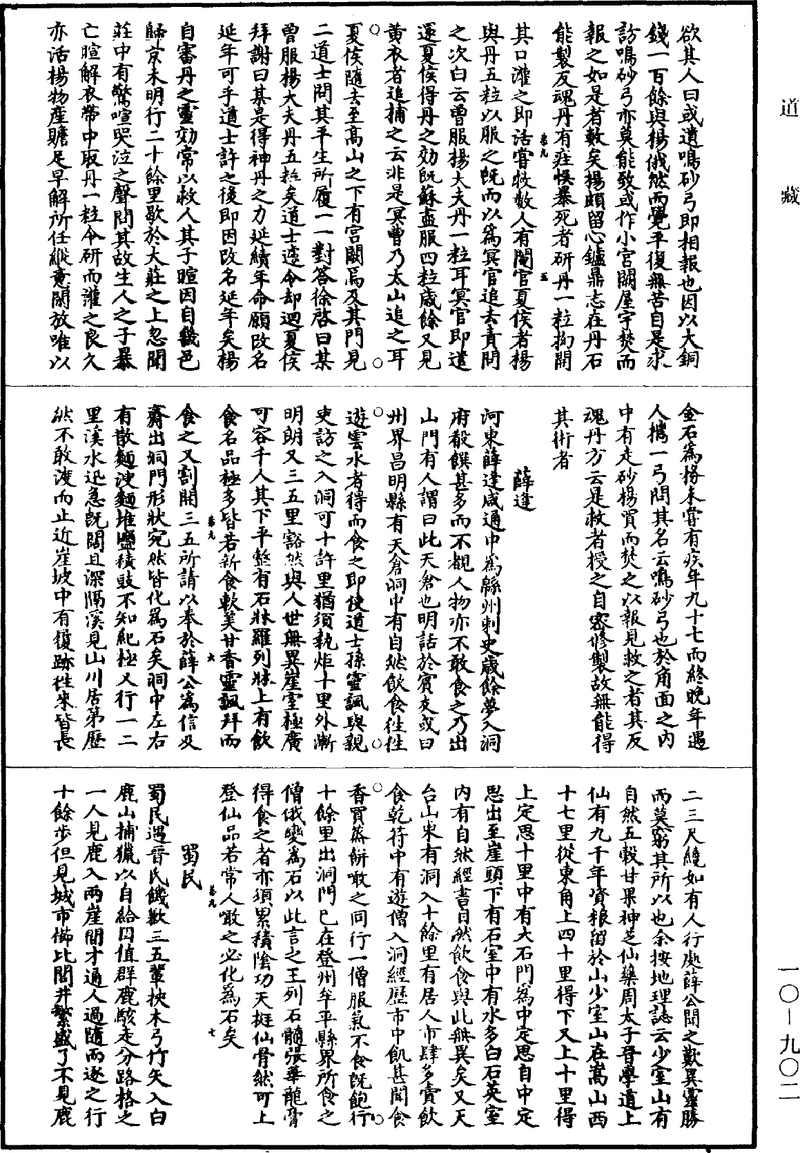 道藏
欲其人曰或遺鳴砂弓即相報也因以大銅
錢一百餘與楊俄然而覺平復無苦自是求
訪鳴砂弓亦莫能致或作小宮闕屋宇焚而
報之如是者數矣楊頗留心鑪鼎志在丹石
能製反魂丹有疰悮暴死者研丹一粒拗開
其口灌之即活嘗救數人有閹官夏侯者楊
與丹五粒以服之既而以為冥官追去責問
之次白云曾服楊大夫丹一粒耳冥官即遣
還夏侯得丹之効既蘇盡服四粒歲餘又見
黃衣者追捕之云非是冥曹乃太山追之耳
夏侯隨去至高山之下有宮闕焉及其門見
二道士問其平生所履一一對答徐啓曰某
曾服楊大夫丹五粒矣道士遽令却迴夏侯
拜謝曰某是得神丹之力延續年命願改名
延年可乎道士許之後即因改名延年矣楊
自審丹之靈効常以救人其子暄因自畿邑
歸京未明行二十餘里歇於大莊之上忽聞
莊中有驚喧哭泣之聲問其故主人之子暴
亡暄解衣帶中取丹一粒令研而灌之良久
亦活楊物產贍足早解所任縱意閑放唯以
金石為務未嘗有疾年九十七而終晚年遇
人攜一弓問其名云鳴砂弓也於角面之內
中有走砂楊買而焚之以報見救之者其反
魂丹方云是救者授之自密修製故無能得
其術者
薛逢
河東薛逢咸通中為緜州刺史歲餘夢入洞
府殽饌甚多而不覩人物亦不敢食之乃出
山門有人謂曰此天倉也明話於賓友或曰
州界昌明縣有天倉洞中有自然飲食往往
遊雲水者得而食之即使道士孫靈諷與親
吏訪之入洞可十許里猶須執炬十里外漸
明朗又三五里豁然與人世無異崖室極廣
可容千人其下平整有石牀羅列牀上有飲
食名品極多皆若新食軟美甘香靈諷拜而
食之又割開三五所請以奉於薛公為信及
齎出洞門形狀宛然皆化為石矣洞中左右
有散麵溲麵堆鹽積豉不知紀極又行一二
里溪水迅急既闊且深隔溪見山川居第歷
然不敢渡而止近崖坡中有履跡往來皆長
二三尺纔如有人行處薛公聞之歎異靈勝
而莫窮其所以也余按地理誌云少室山有
自然五穀甘果神芝仙藥周太子晉學道上
仙有九千年資粮留於山少室山在嵩山西
十七里從東角上四十里得下又上十里得
上定思十里中有大石門為中定思自中定
思出至崖頭下有石室中有水多白石英室
內有自然經書自然飲食與此無異矣又天
台山東有洞入十餘里有居人市肆多賣飲
食乾符中有遊僧入洞經歷市中飢甚聞食
香買蒸餅噉之同行一僧服氣不食既飽行
十餘里出洞門已在登州牟平縣界所食之
僧俄變為石以此言之王列石髓張華龍膏
得食之者亦須累積陰功天挺仙骨然可上
登仙品若常人噉之必化為石矣
蜀民
蜀民遇晉氏饑歉三五輩挾木弓竹矢入白
鹿山捕獵以自給因值群鹿駭走分路格之
一人見鹿入兩崖間才通人過隨而逐之行
十餘步但見城市櫛比閭井繁盛了不見鹿
卷九 五
卷九 六
卷九 七
一〇－九〇二